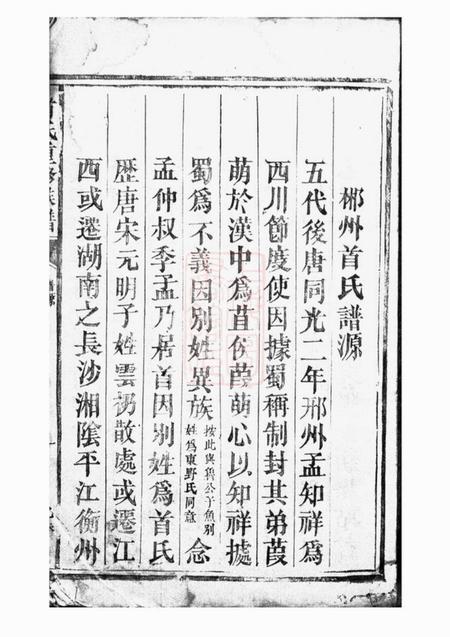 郴州首氏譜源
五代後唐同光二年邢州孟知祥爲
西川節度使因據蜀稱制封其弟葭
萌於漢中爲苴侯葭萌心以知祥據
蜀爲不義因別姓異族按此與魯公子魚別姓爲東野氏同意念
孟仲叔季孟乃居首因別姓爲首氏
歷唐宋元明子姓雲礽散處或遷江
西或遷湖南之長沙湘陰平江衡州
氏重修族譜
譜源